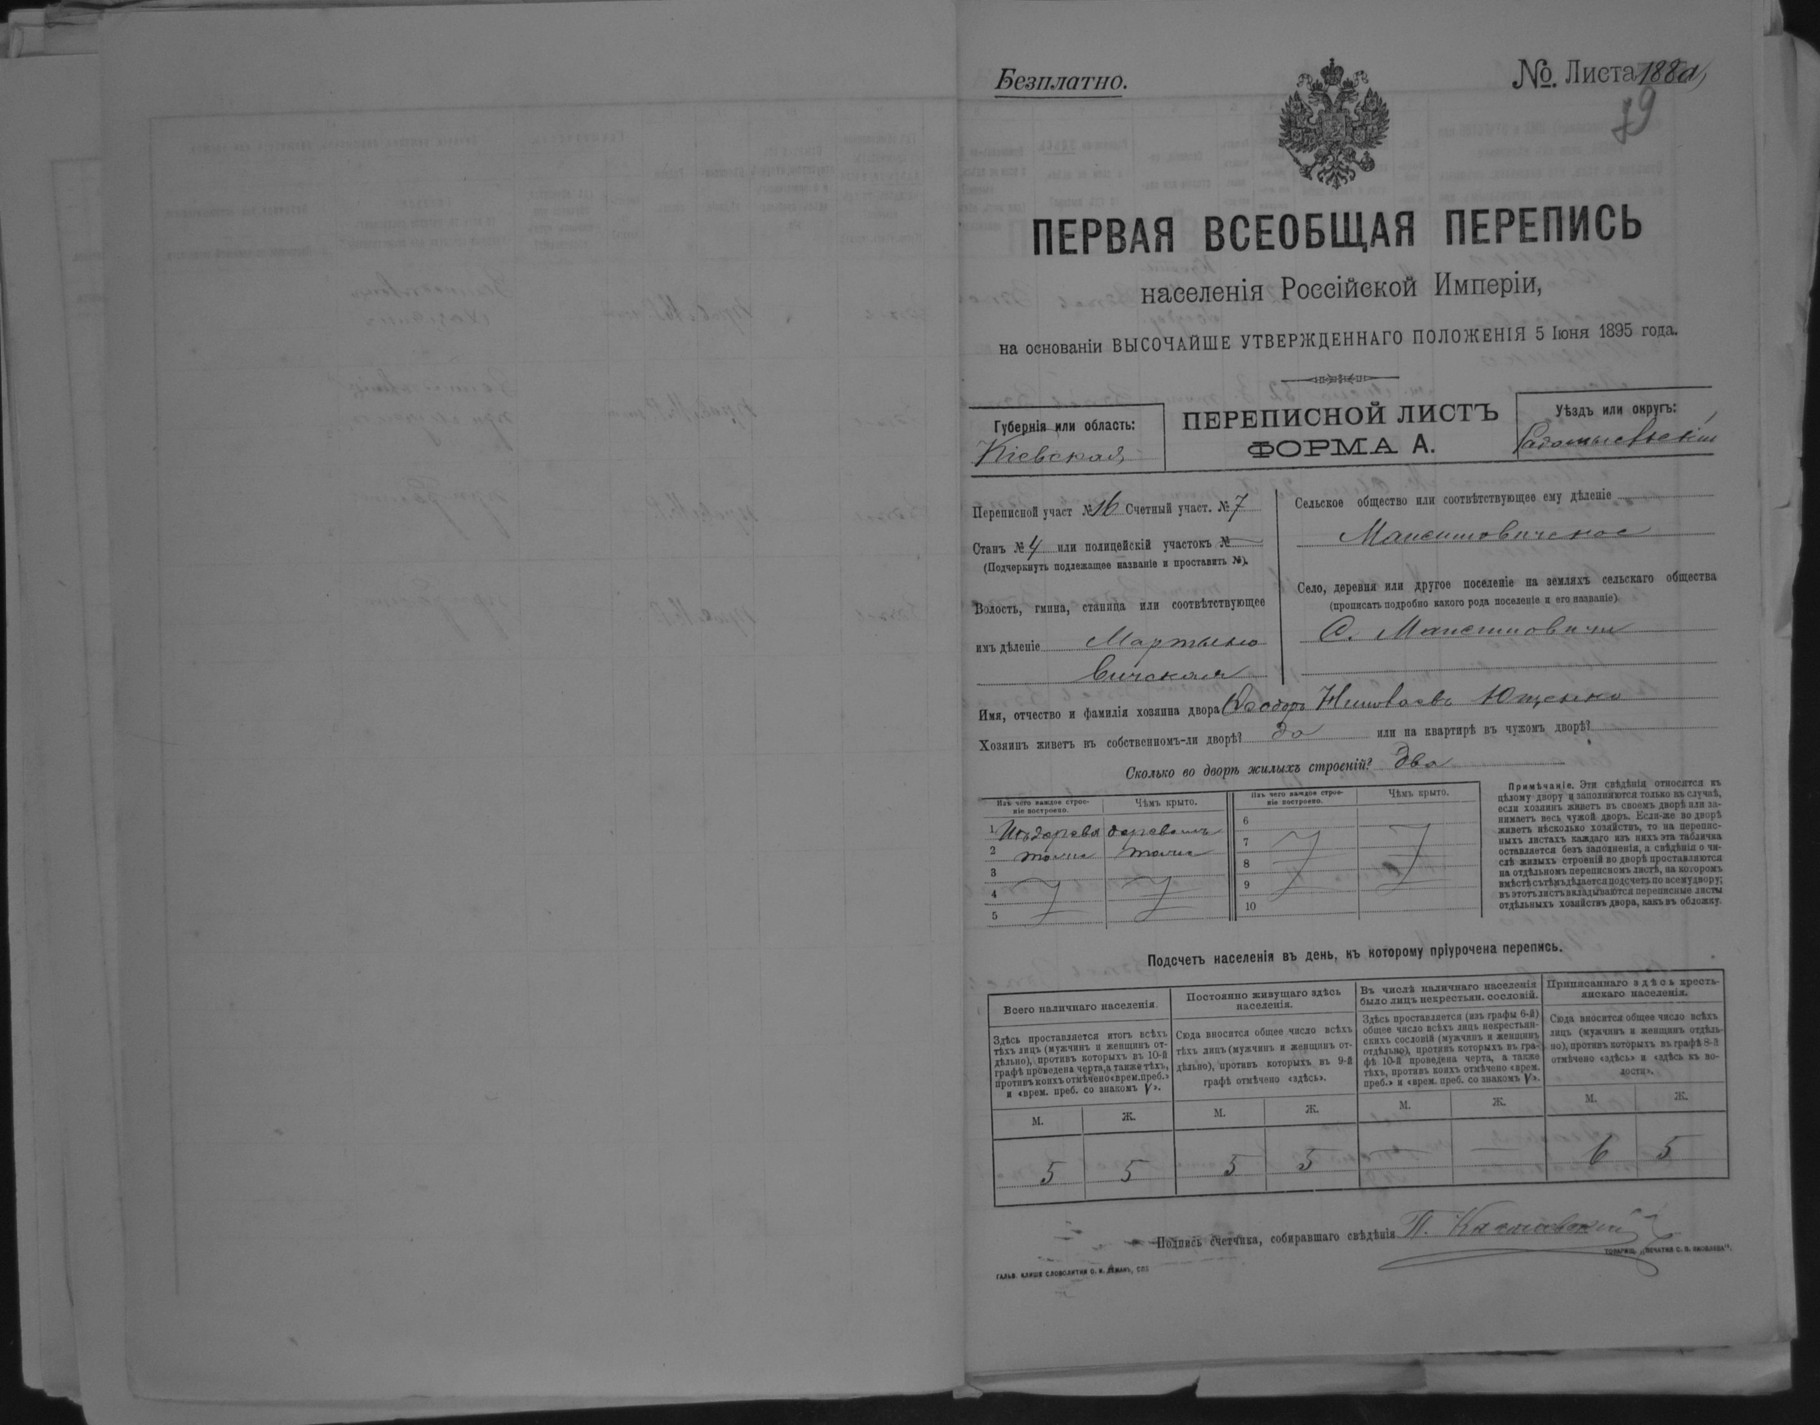 Безплатно.
№. Листа 188а
79
ПЕРВАЯ ВСЕОБЩАЯ ПЕРЕПИСЬ
населенія Россійской Имперіи,
на основаніи ВЫСОЧАЙШЕ УТВЕРЖДЕННАГО ПОЛОЖЕНІЯ 5 Іюня 1895 года.
Губернія или область:
Кіевская
ПЕРЕПИСНОЙ ЛИСТЪ
ФОРМА А.
Уѣздъ или округъ:
Радомысльскій
Переписной участ № 16 Счетный участ. № 7
Станъ № 4 или полицейскій участокъ №
(Подчеркнуть подлежащее названіе и проставить №).
Волость, гмина, станица или соотвѣтствующее
имъ дѣленіе Мартыно
вичская
Сельское общество или соотвѣтствующее ему дѣленіе
Максимовичское
Село, деревня или другое поселеніе на земляхъ сельскаго общества
(прописать подробно какого рода поселеніе и его названіе)
С. Максимовичи
Имя, отчество и фамилія хозяина двора Ѳеодоръ Николаевъ Ющенко
Хозяинъ живетъ въ собственномъ-ли дворѣ? да или на квартирѣ въ чужомъ дворѣ?
Сколько во дворѣ жилыхъ строеній? два
Изъ чего каждое строе-
ніе построено.
Чѣмъ крыто.
1 Изъ дерева деревомъ
2 тоже тоже
3
4
5
Изъ чего каждое строе-
ніе построено.
Чѣмъ крыто.
6
7
8
9
10
Примѣчаніе. Эти свѣдѣнія относятся къ
цѣлому двору и заполняются только въ случаѣ,
если хозяинъ живетъ въ своемъ дворѣ или за-
нимаетъ весь чужой дворъ. Если-же во дворѣ
живетъ нѣсколько хозяйствъ, то на перепис-
ныхъ листахъ каждаго изъ нихъ эта табличка
оставляется безъ заполненія, а свѣдѣнія о чи-
слѣ жилыхъ строеній во дворѣ проставляются
на отдѣльномъ переписномъ листѣ, на которомъ
вмѣстѣ съ тѣмъ дѣлается подсчетъ по всему двору;
въ этотъ листъ вкладываются переписные листы
отдѣльныхъ хозяйствъ двора, какъ въ обложку.
Подсчетъ населенія въ день, къ которому пріурочена перепись.
Всего наличнаго населенія.
Здѣсь проставляется итогъ всѣхъ
тѣхъ лицъ (мужчинъ и женщинъ от-
дѣльно), противъ которыхъ въ 10-й
графѣ проведена черта, а также тѣхъ,
противъ коихъ отмѣчено «врем. преб.»
и «врем. преб. со знакомъ V».
М. Ж.
5 5
Постоянно живущаго здѣсь
населенія.
Сюда вносится общее число всѣхъ
тѣхъ лицъ (мужчинъ и женщинъ от-
дѣльно), противъ которыхъ въ 9-й
графѣ отмѣчено «здѣсь».
М. Ж.
5 5
Въ числѣ наличнаго населенія
было лицъ некрестьян. сословій.
Здѣсь проставляется (изъ графы 6-й)
общее число всѣхъ лицъ некрестьян-
скихъ сословій (мужчинъ и женщинъ
отдѣльно), противъ которыхъ въ гра-
фѣ 10-й проведена черта, а также
тѣхъ, противъ коихъ отмѣчено «врем.
преб.» и «врем. преб. со знакомъ V».
М. Ж.
Приписаннаго здѣсь кресть-
янскаго населенія.
Сюда вносится общее число всѣхъ
лицъ (мужчинъ и женщинъ отдѣль-
но), противъ которыхъ въ графѣ 8-й
отмѣчено «здѣсь» и «здѣсь къ во-
лости».
М. Ж.
6 5
Подпись счетчика, собиравшаго свѣдѣнія П.
ГАЛЬВ. КЛИШЕ СЛОВОЛИТНИ О. И. ЛЕМАНЪ, СПБ
ТОВАРИЩ. „ПЕЧАТНЯ С. П. ЯКОВЛЕВА".